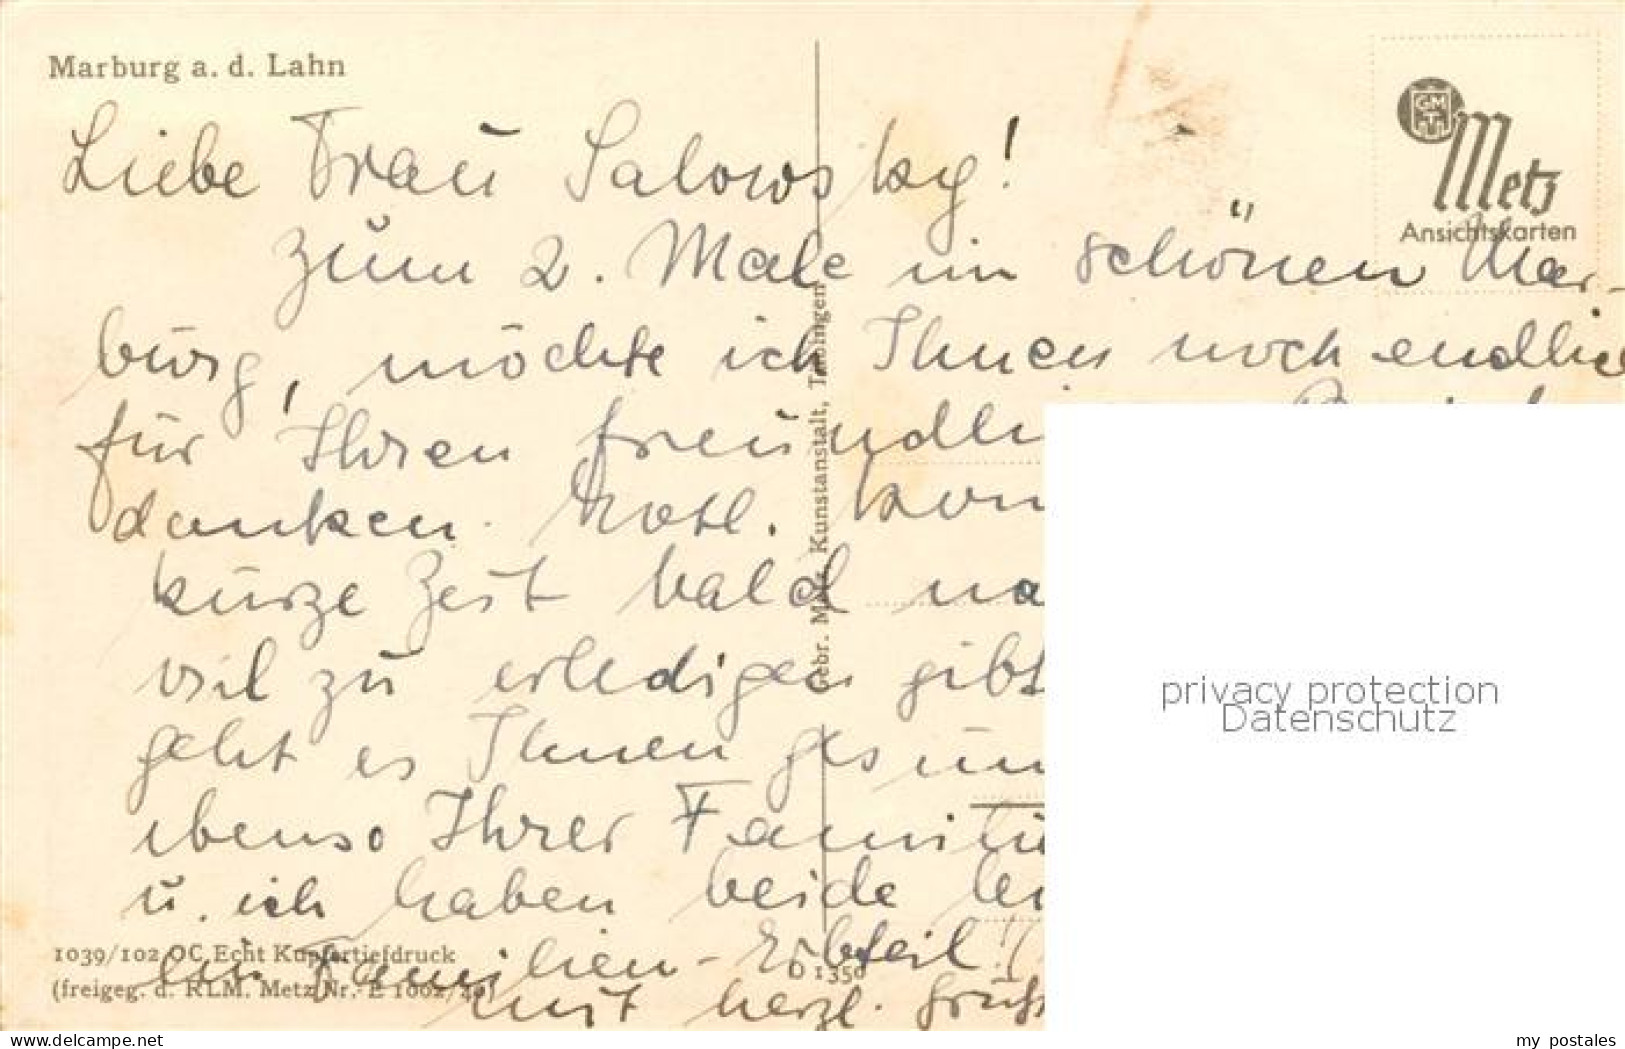 Marburg a. d. Lahn
GMT
Metz
Ansichtskarten
Liebe Frau Salowsky!
Zum 2. Male im schönen Mar-
burg, möchte ich Ihnen noch endlic
für Ihren freundli
danken.
kurze Zeit bald na
viel zu erledigen gibt
geht es Ihnen gesun
ebenso Ihrer Famili
u. ich haben beide
ein Familien-Erbteil!
mit herzl. Grüß
Gebr. Metz, Kunstanstalt, Tübingen
1039/102 OC Echt Kupfertiefdruck
(freigeg. d. RLM. Metz Nr. E 1002/40)
D 1350
privacy protection
Datenschutz
www.delcampe.net
my_postales